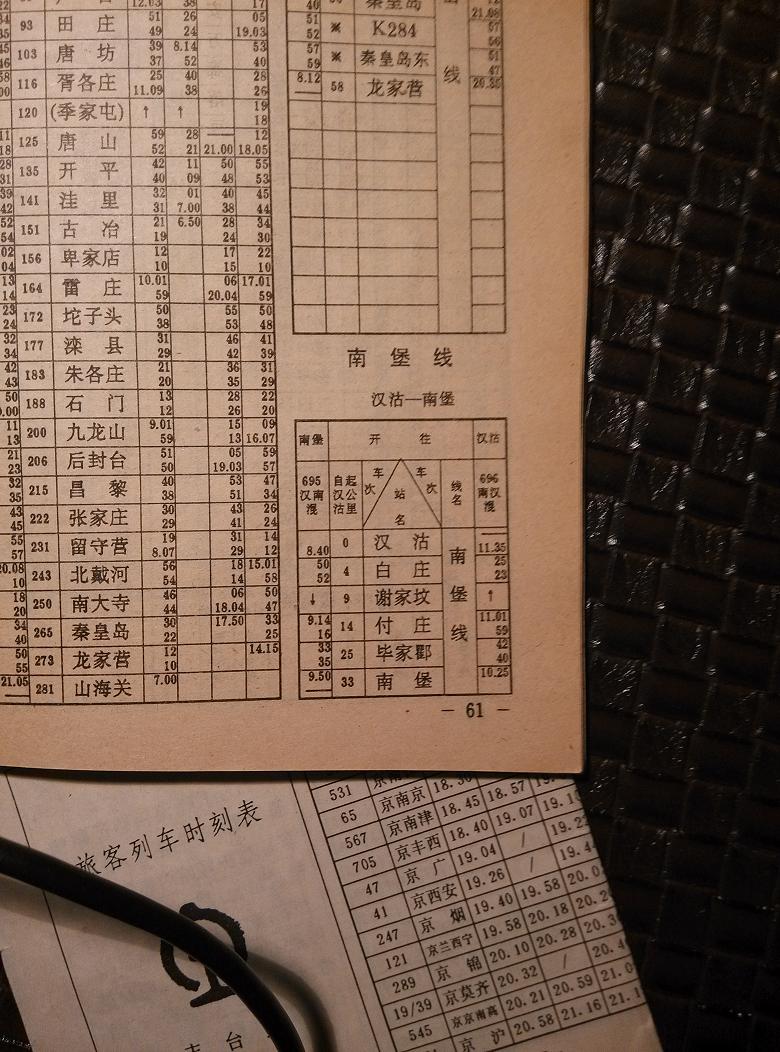 93 田 庄 51 26 05
49 24 19.03
103 唐 坊 39 8.14 53
37 52 40
116 胥各庄 25 40 28
11.09 38 26
120 (季家屯) ↑ ↑ 19
18
125 唐 山 59 28 —— 12
52 21 21.00 18.05
135 开 平 42 11 50 55
40 09 48 53
141 洼 里 32 01 40 45
31 7.00 38 44
151 古 冶 21 6.50 28 34
19 24 30
156 卑家店 12 17 22
10 15 10
164 雷 庄 10.01 06 17.01
59 20.04 59
172 坨子头 50 55 50
38 53 48
177 滦 县 31 46 41
29 42 39
183 朱各庄 21 36 31
20 35 29
188 石 门 13 28 22
12 26 20
200 九龙山 9.01 15 09
59 13 16.07
206 后封台 51 05 59
50 19.03 57
215 昌 黎 40 53 47
38 51 34
222 张家庄 30 43 26
29 41 24
231 留守营 19 31 14
8.07 29 12
243 北戴河 56 18 15.01
54 14 58
250 南大寺 46 06 50
44 18.04 47
265 秦皇岛 30 17.50 33
22 25
273 龙家营 12 14.15
10
21.05 281 山海关 7.00
秦皇岛
21.08
51 ※ K284 57
52 56
57 ※ 秦皇岛东 51
59 47
8.12 58 龙家营 20.35
线
南 堡 线
汉沽—南堡
南堡 开 往 汉沽
695 汉南混 自起汉公沽里 车次 站名 车次 线名 696 南汉混
8.40 0 汉 沽 11.35
50 4 白 庄 25
52 23
↓ 9 谢家坟 ↑
9.14 14 付 庄 11.01
16 59
33 25 毕家酄 42
35 40
9.50 33 南 堡 10.25
南堡线
— 61 —
旅客列车时刻表
531
65 京南京 18.30
567 京南津 18.45 18.57
705 京丰西 18.40 19.07
47 京 广 19.04 /
41 京西安 19.26 /
247 京 烟 19.40 19.58
121 京兰西宁 19.58 20.18
289 京 锦 20.10 20.28
19/39 京莫齐 20.32 /
545 京京南高 20.21 20.59
京 沪 20.58 21.16